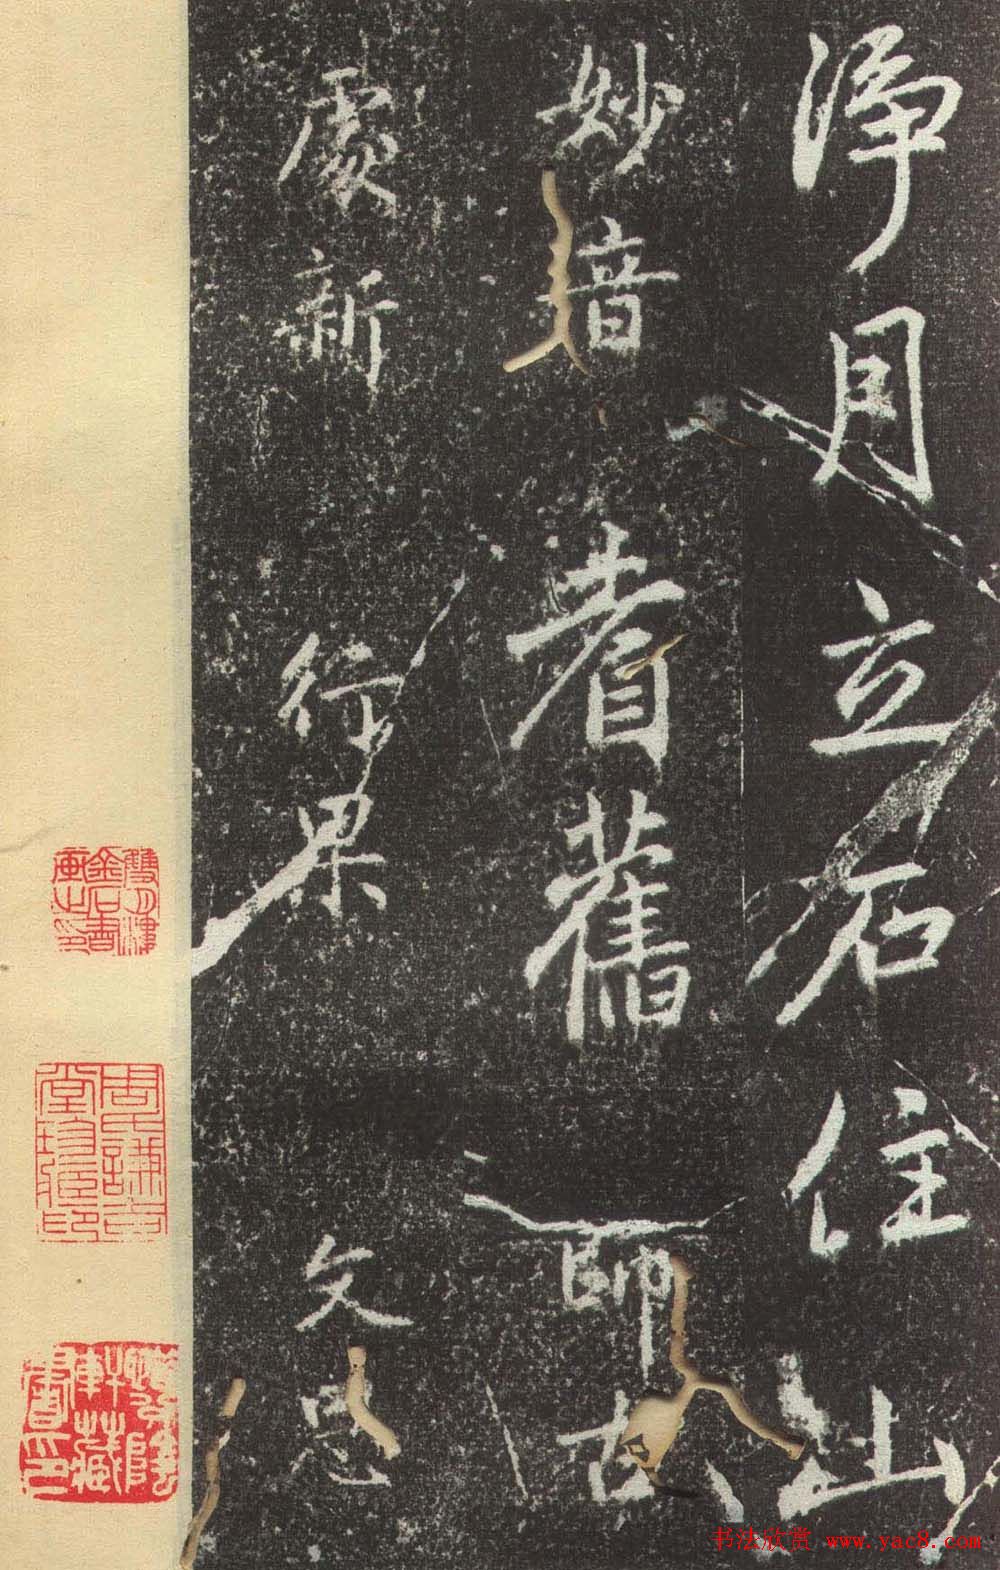 淨月立石住山
妙音 耆舊 師古
處新 行果 文思
书法欣赏 www.yac8.com